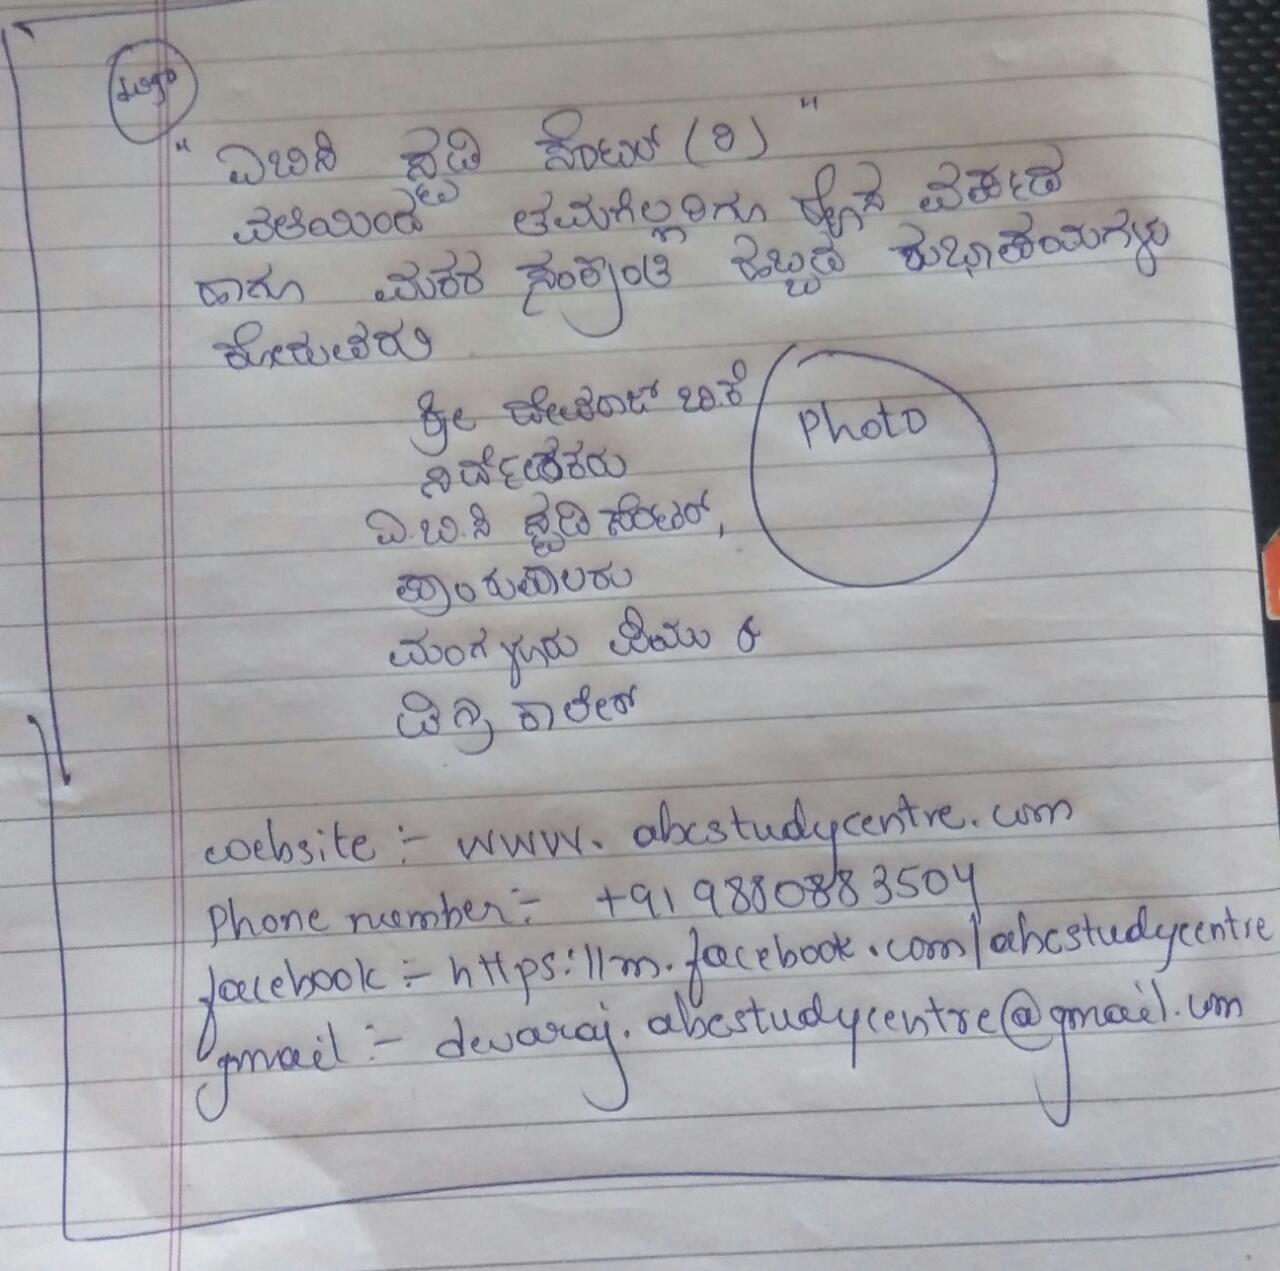 Logo
"ಎಬಿಸಿ ಸ್ಟಡಿ ಸೆಂಟರ್ (ರಿ)"
ವತಿಯಿಂದ ತಮಗೆಲ್ಲರಿಗೂ ಹೊಸ ವರ್ಷದ
ಹಾಗೂ ಮಕರ ಸಂಕ್ರಾಂತಿ ಹಬ್ಬದ ಶುಭಾಶಯಗಳು
ಕೋರುವವರು
ಶ್ರೀ ದೇವರಾಜ್ ಬಿ.ಕೆ
Photo
ನಿರ್ದೇಶಕರು
ಎ.ಬಿ.ಸಿ ಸ್ಟಡಿ ಸೆಂಟರ್,
ಪ್ರಾಂಶುಪಾಲರು
ಮಂಗಳೂರು ಪಿಯು &
ಡಿಗ್ರಿ ಕಾಲೇಜ್
website :- www.abcstudycentre.com
Phone number :- +91 9880883504
facebook :- https://m.facebook.com/abcstudycentre
gmail :- devaraj.abcstudycentre@gmail.com